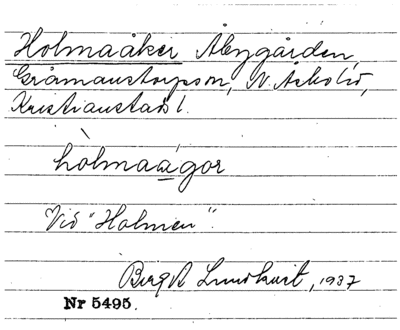 Holmaåker Åbygården,
Gråmanstorpssn, N. Åsbohd,
Kristianstads l.
hòlmaågor
Vid "Holmen".
Birgit Lundkvist, 1937
Nr 5495.